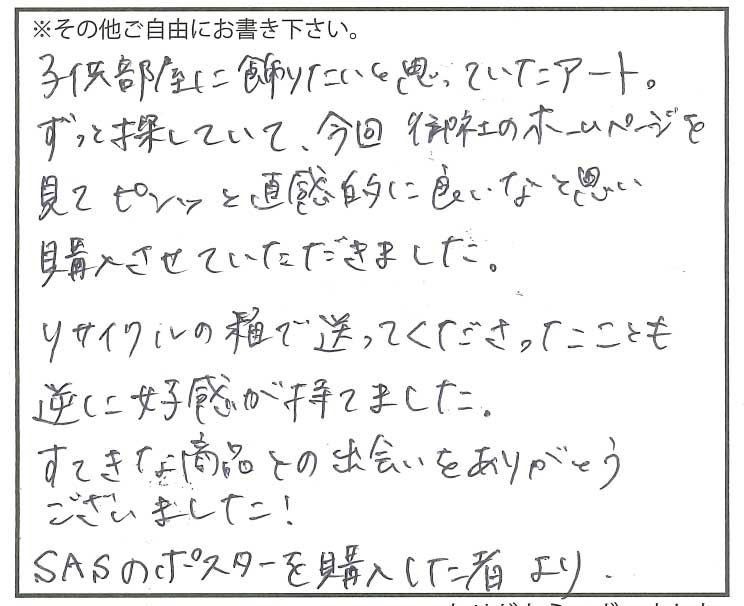 ※その他ご自由にお書き下さい。
子供部屋に飾りたいと思っていたアート。
ずっと探していて、今回 御社のホームページを
見てピンッと直感的に良いなと思い
購入させていただきました。
リサイクルの箱で送ってくださったことも
逆に好感が持てました。
すてきな商品との出会いをありがとう
ございました!
SASのポスターを購入した者 より.